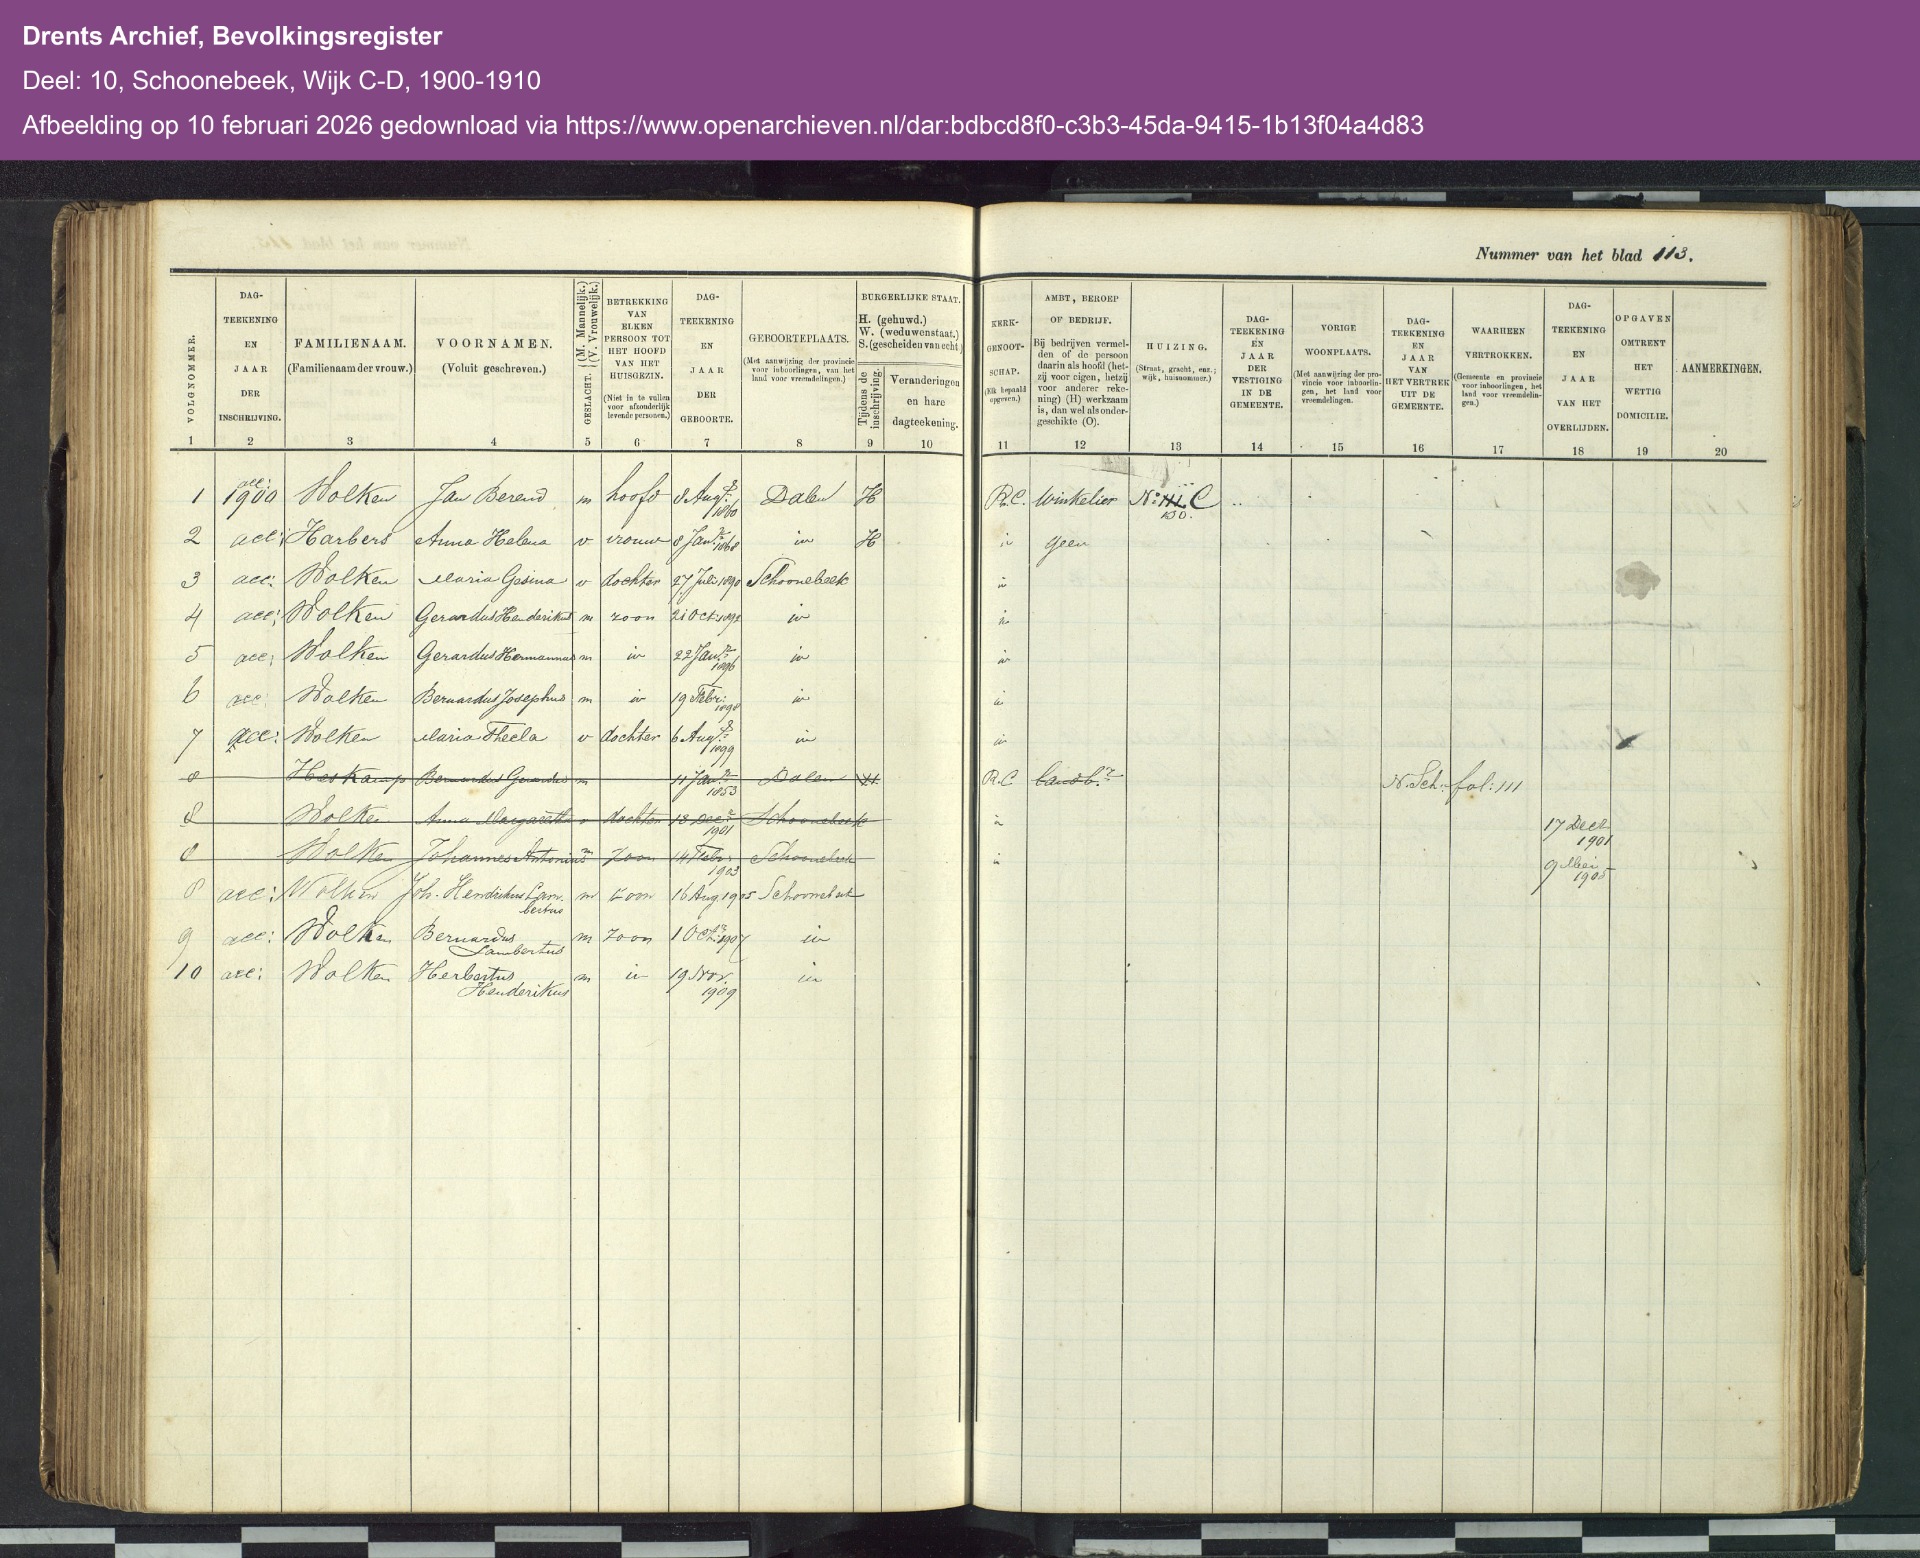 Drents Archief, Bevolkingsregister
Deel: 10, Schoonebeek, Wijk C-D, 1900-1910
Afbeelding op 10 februari 2026 gedownload via https://www.openarchieven.nl/dar:bdbcd8f0-c3b3-45da-9415-1b13f04a4d83
Nummer van het blad 113.
VOLGNOMMER.
DAG-TEEKENING EN JAAR DER INSCHRIJVING.
FAMILIENAAM.
(Familienaam der vrouw.)
VOORNAMEN.
(Voluit geschreven.)
GESLACHT. (M. Mannelijk.) (V. Vrouwelijk.)
BETREKKING VAN ELKEN PERSOON TOT HET HOOFD VAN HET HUISGEZIN.
(Niet in te vullen voor afzonderlijk levende personen.)
DAG-TEEKENING EN JAAR DER GEBOORTE.
GEBOORTEPLAATS.
(Met aanwijzing der provincie voor inboorlingen, van het land voor vreemdelingen.)
BURGERLIJKE STAAT.
H. (gehuwd.)
W. (weduwenstaat.)
S. (gescheiden van echt)
Tijdens de inschrijving.
Veranderingen en hare dagteekening.
KERK-GENOOT-SCHAP.
(Elk bepaald opgeven.)
AMBT, BEROEP OF BEDRIJF.
Bij bedrijven vermelden of de persoon daarin als hoofd (hetzij voor eigen, hetzij voor anderer rekening) (H) werkzaam is, dan wel als ondergeschikte (O).
HUIZING.
(Straat, gracht, enz.; wijk, huisnommer.)
DAG-TEEKENING EN JAAR DER VESTIGING IN DE GEMEENTE.
VORIGE WOONPLAATS.
(Met aanwijzing der provincie voor inboorlingen, het land voor vreemdelingen.
DAG-TEEKENING EN JAAR VAN HET VERTREK UIT DE GEMEENTE.
WAARHEEN VERTROKKEN.
(Gemeente en provincie voor inboorlingen, het land voor vreemdelingen.)
DAG-TEEKENING EN JAAR VAN HET OVERLIJDEN.
OPGAVEN OMTRENT HET WETTIG DOMICILIE.
AANMERKINGEN.
1 2 3 4 5 6 7 8 9 10 11 12 13 14 15 16 17 18 19 20
1 acc: 1900 Wolken Jan Berend m hoofd 8 Aug: 1860 Dalen H R.C. Winkelier No: C 130.
2 acc: Harbers Anna Helena v vrouw 8 Jan: 1868 iv H iv geen
3 acc: Wolken Maria Gesina v dochter 27 Juli 1890 Schoonebeek iv
4 acc: Wolken Gerardus Henderikus m zoon 21 Oct 1892 iv iv
5 acc: Wolken Gerardus Hermannus m iv 22 Jan: 1896 iv iv
6 acc: Wolken Bernardus Josephus m iv 19 Febr: 1898 iv iv
7 acc: Wolken Maria Thecla v dochter 6 Aug: 1899 iv iv
8 Heskamp Bernardus Gerardus m 11 Jan: 1853 Dalen H R.C landb.r N. Sch: fol: 111
8 Wolken Anna Margaretha v dochter 13 Dec: 1901 Schoonebeek iv 17 Dec 1901
8 Wolken Johannes Antonius m zoon 14 Febr: 1903 Schoonebeek iv 9 Mei 1905
8 acc: Wolken Joh. Hendrikus Lambertus m zoon 16 Aug 1905 Schoonebeek
9 acc: Wolken Bernardus Lambertus m zoon 1 Oct: 1907 iv
10 acc: Wolken Herbertus Henderikus m iv 19 Nov. 1909 iv